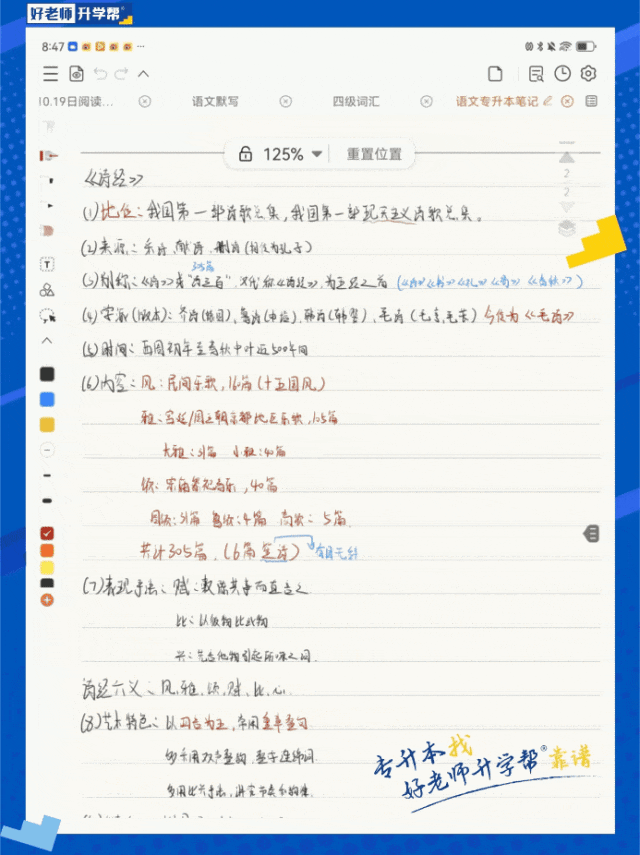 好老师升学帮
8:47
10.19日阅读... 语文默写 四级词汇 语文专升本笔记
125% 重置位置
2
2
《诗经》
(1)地位：我国第一部诗歌总集，我国第一部现实主义诗歌总集。
(2)来源：采诗、献诗、删诗(相传为孔子)
305篇
(3)别称：《诗》或"诗三百"，汉代称《诗经》，为五经之首(《诗》《书》《礼》《易》《春秋》)
(4)宋派(版本)：齐诗(辕固)、鲁诗(申培)、韩诗(韩婴)、毛诗(毛亨、毛苌) 今传为《毛诗》
(5)时间：西周初年至春秋中叶近500年间
(6)内容：风：民间乐歌，16篇(十五国风)
雅：宫廷/周王朝京都地区乐歌，105篇
大雅：31篇 小雅：40篇
颂：宗庙祭祀音乐，40篇
周颂：31篇 鲁颂：4篇 商颂：5篇
共计305篇，(6篇笙诗) 有目无辞
(7)表现手法：赋：敷陈其事而直言之
比：以彼物比此物
兴：先言他物引起所咏之词
诗经六义：风、雅、颂、赋、比、兴
(8)艺术特色：以四言为主，常用重章叠句
多采用双声叠韵、叠字连绵词
多用比兴手法，
专升本找
好老师升学帮靠谱